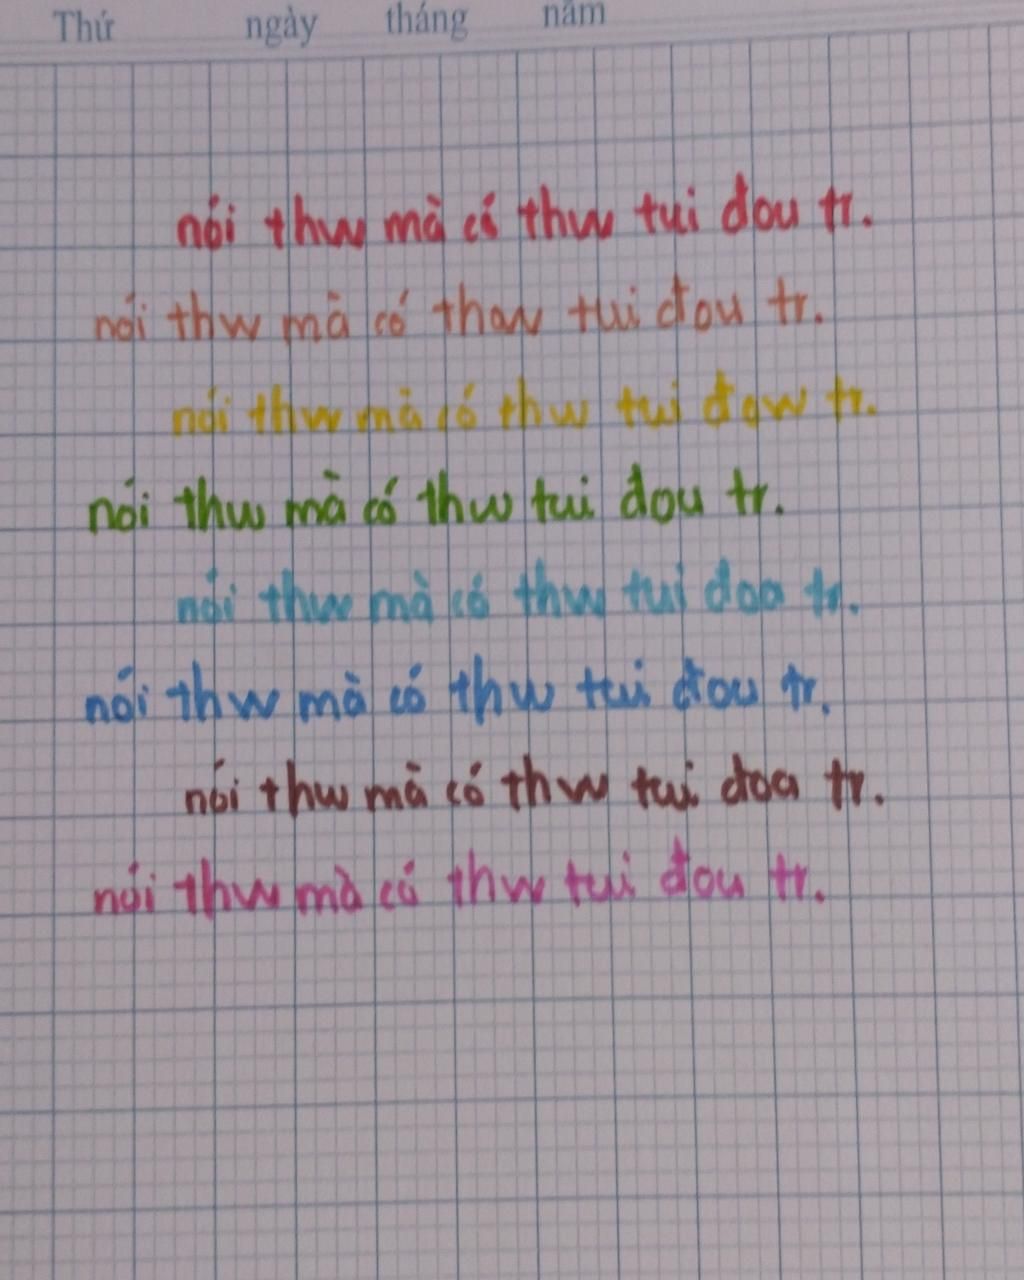 Thứ ngày tháng năm
nói thw mà có thw tui đou tr.
nói thw mà có thow tui đou tr.
nói thw mà có thw tui đow tr.
nói thw mà có thw tui dou tr.
nói thw mà có thw tui doa tr.
nói thw mà có thw tui đou tr.
nói thw mà có thw tui doa tr.
nói thw mà có thw tui đou tr.